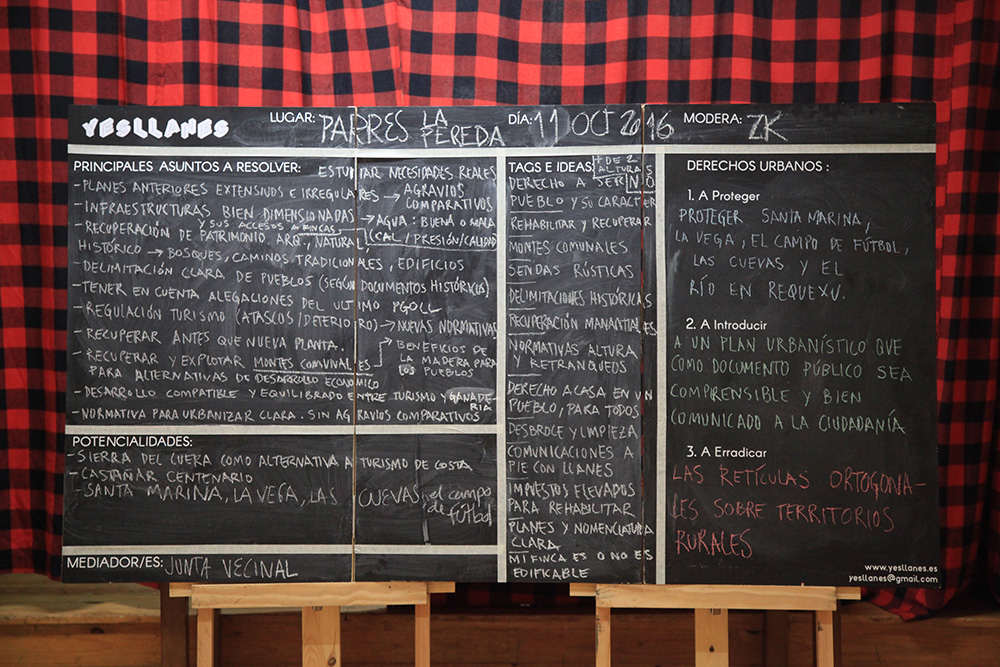 YESLLANES
LUGAR: PARRES LA PEREDA
DÍA: 11 OCT 2016
MODERA: ZK
PRINCIPALES ASUNTOS A RESOLVER: ESTUDIAR NECESIDADES REALES
- PLANES ANTERIORES EXTENSIVOS E IRREGULARES → AGRAVIOS COMPARATIVOS
- INFRAESTRUCTURAS BIEN DIMENSIONADAS Y SUS ACCESOS A FINCAS
→ AGUA: BUENA O MALA (CAL/PRESIÓN/CALIDAD
- RECUPERACIÓN DE PATRIMONIO ARQ, NATURAL,
HISTÓRICO → BOSQUES, CAMINOS TRADICIONALES, EDIFICIOS
- DELIMITACIÓN CLARA DE PUEBLOS (SEGÚN DOCUMENTOS HISTÓRICOS)
- TENER EN CUENTA ALEGACIONES DEL ULTIMO PGOLL
- REGULACIÓN TURISMO (ATASCOS/DETERIORO) → NUEVAS NORMATIVAS
- RECUPERAR ANTES QUE NUEVA PLANTA.
- RECUPERAR Y EXPLOTAR MONTES COMUNALES
PARA ALTERNATIVAS DE DESARROLLO ECONÓMICO
→ BENEFICIOS DE
LA MADERA PARA
LOS PUEBLOS
- DESARROLLO COMPATIBLE Y EQUILIBRADO ENTRE TURISMO Y GANADERIA
- NORMATIVA PARA URBANIZAR CLARA. SIN AGRAVIOS COMPARATIVOS
POTENCIALIDADES:
- SIERRA DEL CUERA COMO ALTERNATIVA A TURISMO DE COSTA
- CASTAÑAR CENTENARIO
- SANTA MARINA, LA VEGA, LAS CUEVAS, el campo de fútbol
MEDIADOR/ES: JUNTA VECINAL
TAGS E IDEAS:
+ DE 2
ALTURAS
NO
DERECHO A SER
PUEBLO Y SU CARACTER
REHABILITAR Y RECUPERAR
MONTES COMUNALES
SENDAS RÚSTICAS
DELIMITACIONES HISTÓRICAS
RECUPERACIÓN MANANTIALES
NORMATIVAS ALTURA
Y RETRANQUEOS
DERECHO A CASA EN UN
PUEBLO, PARA TODOS
DESBROCE Y LIMPIEZA
COMUNICACIONES A
PIE CON LLANES
IMPUESTOS ELEVADOS
PARA REHABILITAR
PLANES Y NOMENCLATURA
CLARA
MI FINCA ES O NO ES
EDIFICABLE
DERECHOS URBANOS :
1. A Proteger
PROTEGER SANTA MARINA,
LA VEGA, EL CAMPO DE FÚTBOL,
LAS CUEVAS Y EL
RÍO EN REQUEXU.
2. A Introducir
A UN PLAN URBANÍSTICO QUE
COMO DOCUMENTO PÚBLICO SEA
COMPRENSIBLE Y BIEN
COMUNICADO A LA CIUDADANÍA
3. A Erradicar
LAS RETÍCULAS ORTOGONA-
LES SOBRE TERRITORIOS
RURALES
www.yesllanes.es
yesllanes@gmail.com